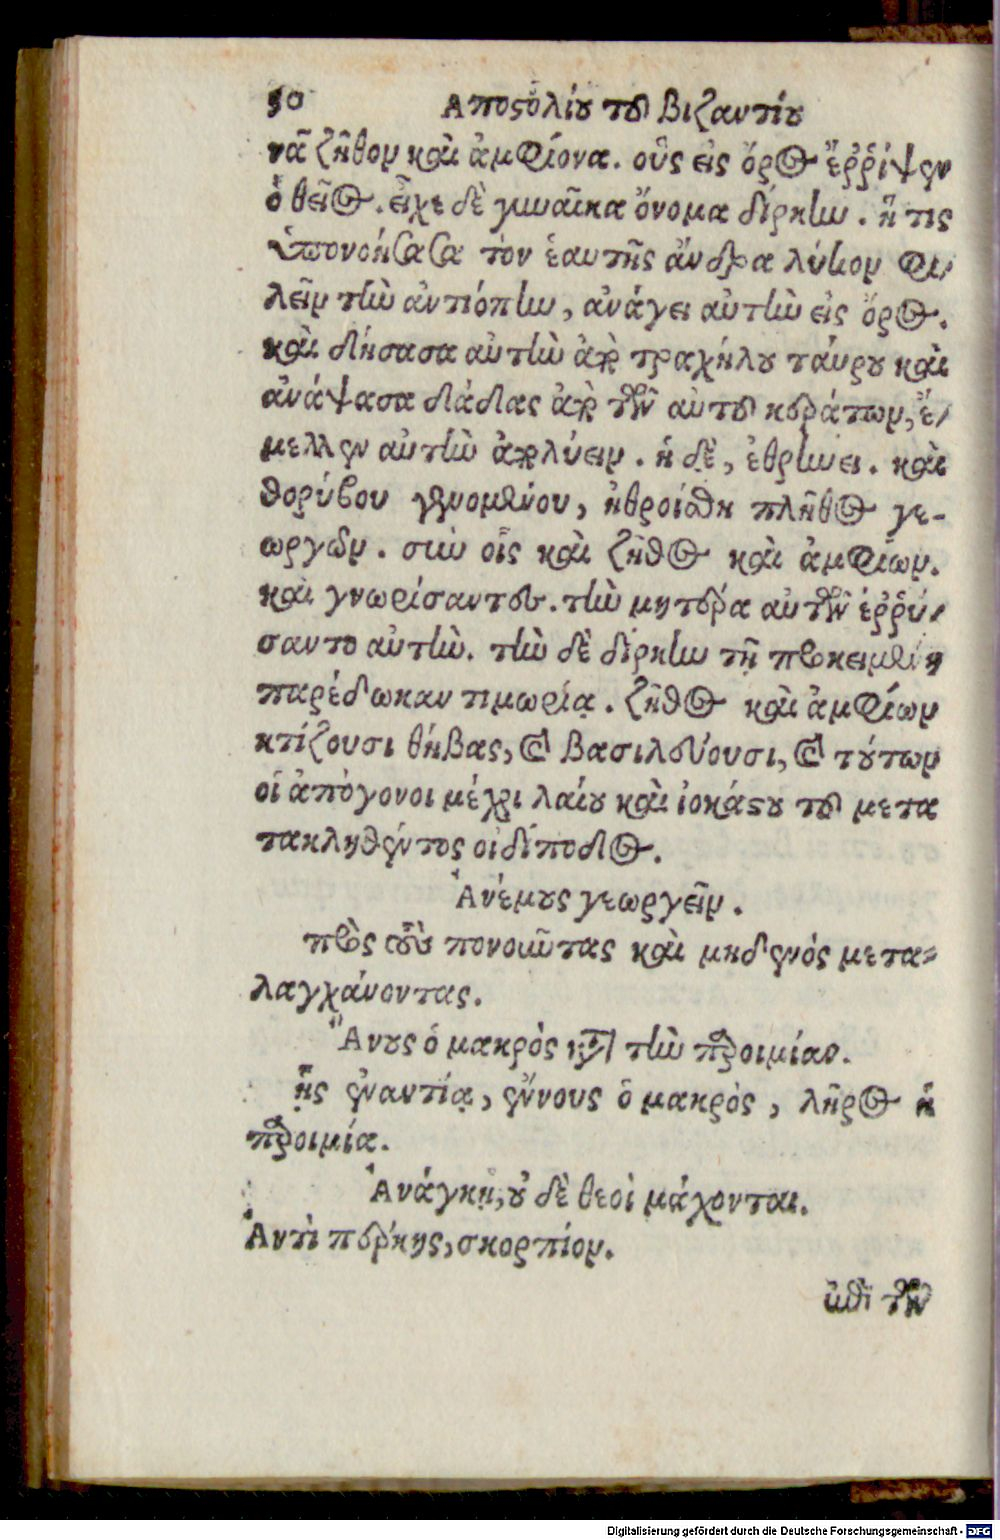 50 Αποστολίου του Βιζαντίου
νᾶ ζῆθον καὶ ἀμφίονα. οὓς εἰς ὄρος ἔῤῥιψεν
ὁ θεῖος. εἶχε δὲ γυναῖκα ὄνομα δίρκην. ἥ τις
ὑπονοήσασα τὸν ἑαυτῆς ἄνδρα λύκον φι-
λεῖν τὴν ἀντιόπην, ἀνάγει αὐτὴν εἰς ὄρος.
καὶ δήσασα αὐτὴν ἀπὸ τραχήλου ταύρου καὶ
ἀνάψασα δάδας ἀπὸ τῶν αὐτοῦ κεράτων, ἔ-
μελλεν αὐτὴν ἀπολύειν. ἡ δὲ, ἐθρήνει. καὶ
θορύβου γενομένου, ἠθροίσθη πλῆθος γε-
ωργῶν. σὺν οἷς καὶ ζῆθος καὶ ἀμφίων.
καὶ γνωρίσαντες. τὴν μητέρα αὐτῶν ἐῤῥύ-
σαντο αὐτήν. τὴν δὲ δίρκην τῇ προκειμένῃ
παρέδωκαν τιμωρίᾳ. ζῆθος καὶ ἀμφίων
κτίζουσι θήβας, καὶ βασιλεύουσι, καὶ τούτων
οἱ ἀπόγονοι μέχρι λαίου καὶ ἰοκάστου τοῦ μετα
τακληθέντος οἰδίποδος.
Ἀνέμους γεωργεῖν.
πρὸς τοὺς πονοῦντας καὶ μηδενὸς μετα-
λαγχάνοντας.
Ἄνους ὁ μακρὸς κατὰ τὴν παροιμίαν.
ᾗς ἐναντία, ἔννους ὁ μακρὸς, λῆρος ἡ
παροιμία.
Ἀνάγκῃ, οὐδὲ θεοὶ μάχονται.
Ἀντὶ πέρκης, σκορπίον.
ἐπὶ τῶν
Digitalisierung gefördert durch die Deutsche Forschungsgemeinschaft - DFG